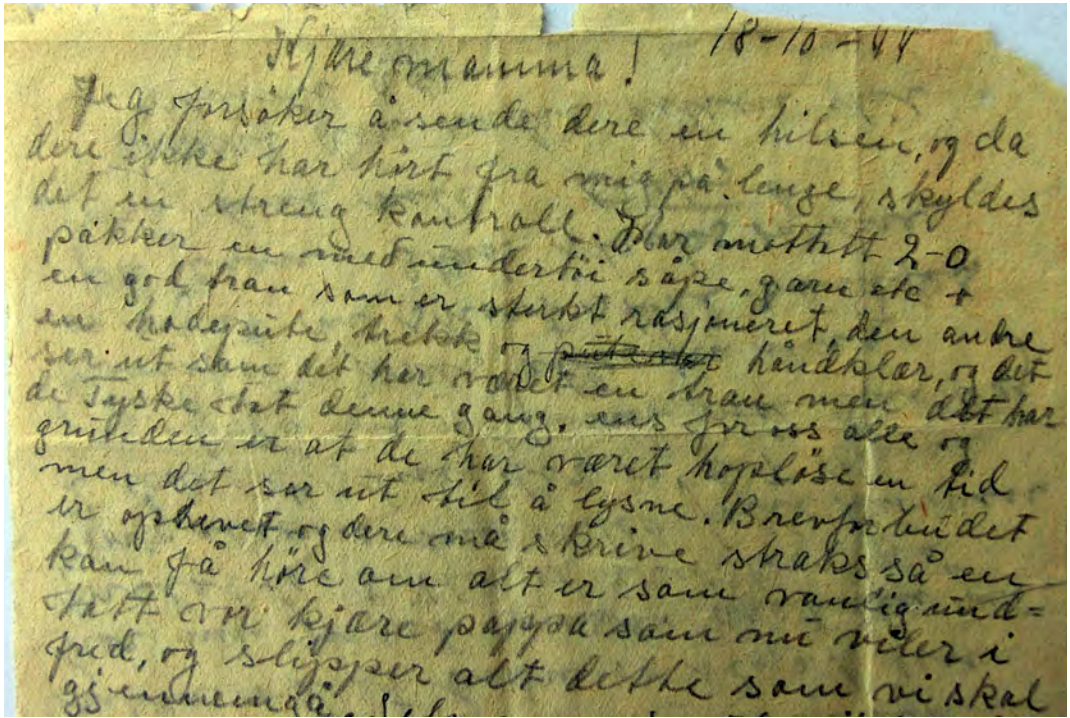 18-10-44
Kjære mamma!
Jeg forsöker å sende dere en hilsen, og da
dere ikke har hört fra mig på lenge, skyldes
det en streng kontroll. Har mottatt 2-0
pakker en med undertöi såpe, garn etc +
en god tran som er sterkt rasjoneret, den andre
en hodepute, trekk og håndklær, og det
ser ut som det har været en tran men det har
de Tyske tat denne gang. ens for oss alle og
grunden er at de har været hoplöse en tid
men det ser ut til å lysne. Brevforbudet
er ophevet og dere må skrive straks så en
kan få höre om alt er som vanlig und=
tatt vor kjære pappa som nu viler i
fred, og slipper alt dette som vi skal
gjennemgå.